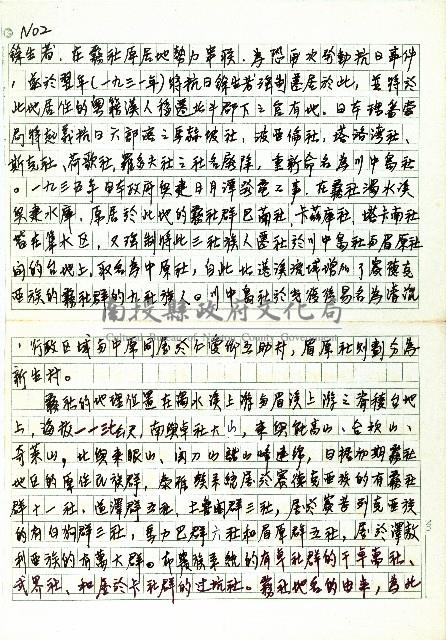 NO2
餘生者,在霧社原居地勢力串聯,為恐再次發動抗日事件
,遂於翌年(一九三一年)將抗日餘生者強制遷居於此,並將於
此地居住的粵籍漢人移遷北斗郡下之官有地。日本殖民當
局將起義抗日六部落之馬赫坡社,波亞倫社,塔洛灣社、
斯克社、荷歌社,羅多夫社之社名廢除,重新命名為川中島社
。一九三五年日本政府興建日月潭發電工事,在霧社濁水溪
興建水庫,原居於此地的霧社群巴蘭社,卡茲庫社,塔卡南社
皆在集水區,又強制將此三社族人遷社於川中島社與眉原社
間的台地上,取名為中原社,自此北港溪流域增加了賽德克
亞族的霧社群的九社族人。川中島社於光復後易名為清流
,行政區域與中原同屬於仁愛鄉互助村,眉原社則劃分為
新生村。
霧社的地理位置在濁水溪上游與眉溪上游之脊稜台地
上,海拔一一三七公尺,南與卓社大山,東與能高山、合歡山、
奇萊山,北與東眼山、關刀山諸山峰連綿,日據初期霧社
地區的原住民族群,泰雅族系統屬於賽德克亞族的有霧社
群十一社,道澤群五社,土魯閣群三社,屬於賽考列克亞族
的有白狗群三社,馬力巴群六社和眉原群五社,屬於澤敖
利亞族的有萬大群。布農族系統的有卓社群的干卓萬社、
武界社、和屬於卡社群的過坑社。霧社地名的由來,為此
南投縣政府文化局